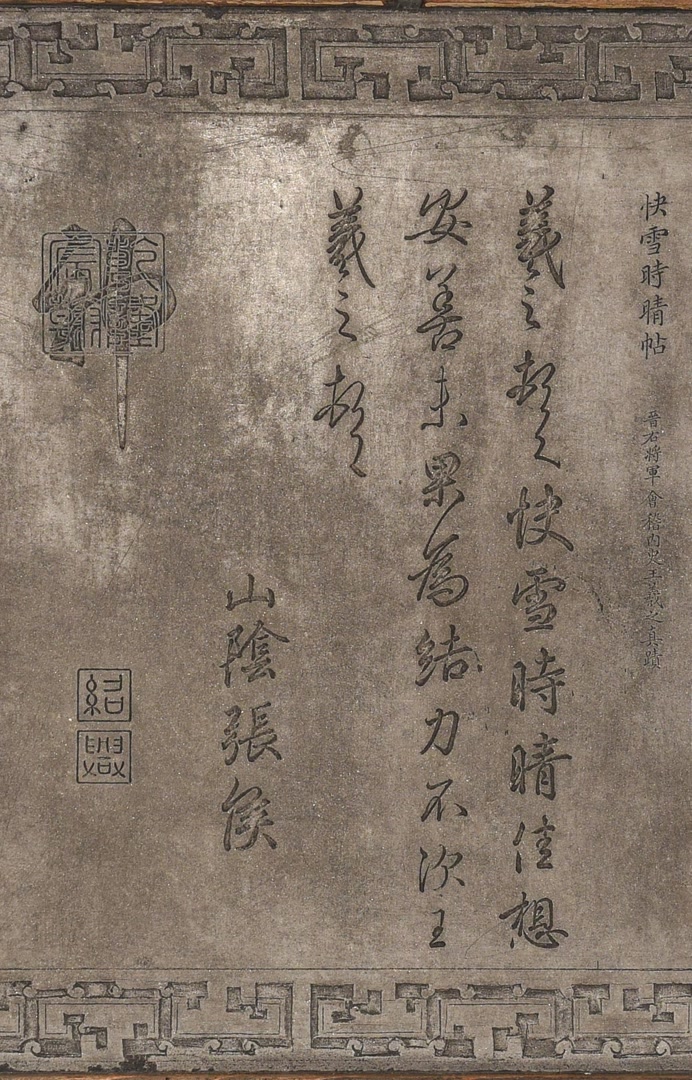 快雪時晴帖 晉右將軍會稽内史王羲之真蹟
羲之頓首快雪時晴佳想
安善未果為結力不次王
羲之頓首
山陰張侯
紹興